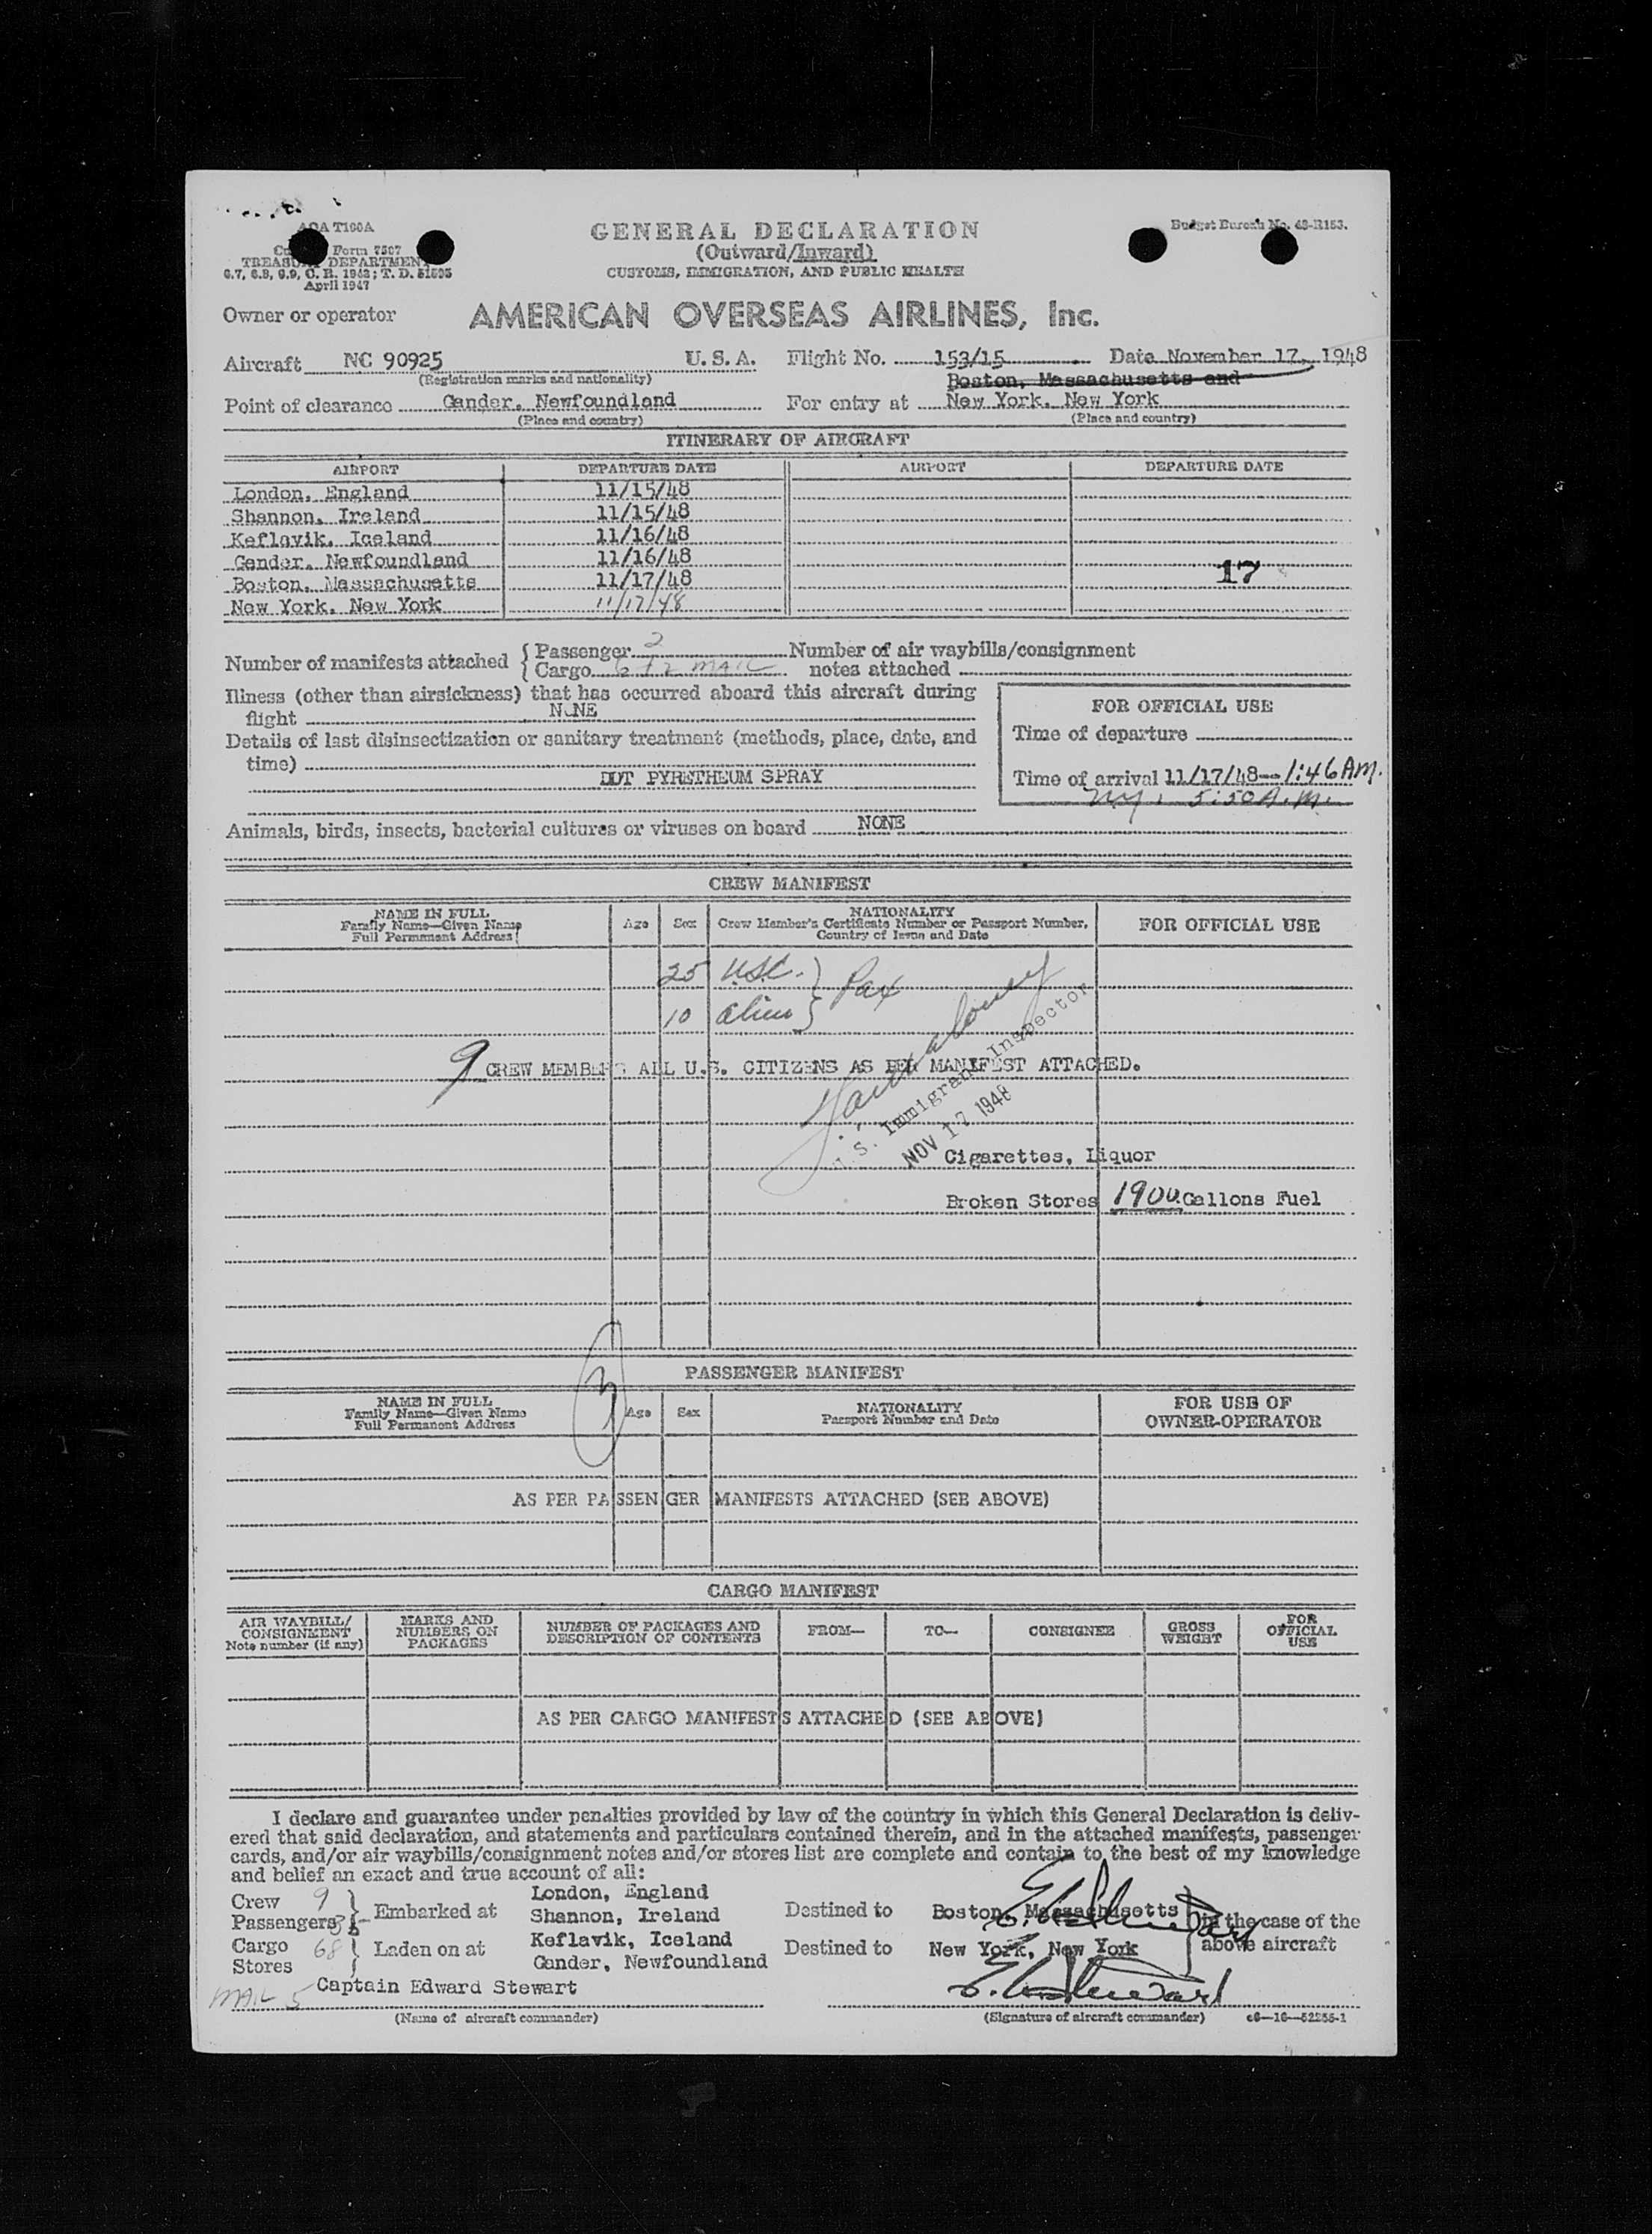 AOA T100A
Form 7507
TREASURY DEPARTMENT
April 1947
GENERAL DECLARATION
(Outward/Inward)
CUSTOMS, IMMIGRATION, AND PUBLIC HEALTH
Budget Bureau No. 48-R153.
Owner or operator AMERICAN OVERSEAS AIRLINES, Inc.
Aircraft NC 90925 U. S. A. Flight No. 153/15 Date November 17, 1948
(Registration marks and nationality) Boston, Massachusetts and
Point of clearance Gander, Newfoundland For entry at New York, New York
(Place and country) (Place and country)
ITINERARY OF AIRCRAFT
AIRPORT DEPARTURE DATE AIRPORT DEPARTURE DATE
London, England 11/15/48
Shannon, Ireland 11/15/48
Keflavik, Iceland 11/16/48
Gander, Newfoundland 11/16/48
Boston, Massachusetts 11/17/48 17
New York, New York 11/17/48
Number of manifests attached { Passenger 2 Number of air waybills/consignment
Cargo 6 + 2 MAIL notes attached
Illness (other than airsickness) that has occurred aboard this aircraft during
flight NONE
FOR OFFICIAL USE
Time of departure
Time of arrival 11/17/48 - 1:46 AM.
NY. 5:50 A.M.
Details of last disinsectization or sanitary treatment (methods, place, date, and
time)
DDT PYRETHEUM SPRAY
Animals, birds, insects, bacterial cultures or viruses on board NONE
CREW MANIFEST
NAME IN FULL
Family Name—Given Name
Full Permanent Address
Age Sex
NATIONALITY
Crew Member's Certificate Number or Passport Number,
Country of Issue and Date
FOR OFFICIAL USE
25 USC. } Pax
10 alien }
9 CREW MEMBERS ALL U.S. CITIZENS AS PER MANIFEST ATTACHED.
U.S. Immigrant Inspector
NOV 17 1948
Cigarettes, Liquor
Broken Stores 1900 Gallons Fuel
3
PASSENGER MANIFEST
NAME IN FULL
Family Name—Given Name
Full Permanent Address
Age Sex
NATIONALITY
Passport Number and Date
FOR USE OF
OWNER-OPERATOR
AS PER PASSENGER MANIFESTS ATTACHED (SEE ABOVE)
CARGO MANIFEST
AIR WAYBILL/
CONSIGNMENT
Note number (if any)
MARKS AND
NUMBERS ON
PACKAGES
NUMBER OF PACKAGES AND
DESCRIPTION OF CONTENTS
FROM—
TO—
CONSIGNEE
GROSS
WEIGHT
FOR
OFFICIAL
USE
AS PER CARGO MANIFESTS ATTACHED (SEE ABOVE)
I declare and guarantee under penalties provided by law of the country in which this General Declaration is deliv-
ered that said declaration, and statements and particulars contained therein, and in the attached manifests, passenger
cards, and/or air waybills/consignment notes and/or stores list are complete and contain to the best of my knowledge
and belief an exact and true account of all:
Crew 9
Passengers
} Embarked at
London, England
Shannon, Ireland
Destined to Boston, Massachusetts
Cargo 68
Stores
} Laden on at
Keflavik, Iceland
Gander, Newfoundland
Destined to New York, New York
in the case of the
above aircraft
MAIL 5 Captain Edward Stewart
E. Stewart
(Name of aircraft commander) (Signature of aircraft commander) c6—16—52255-1